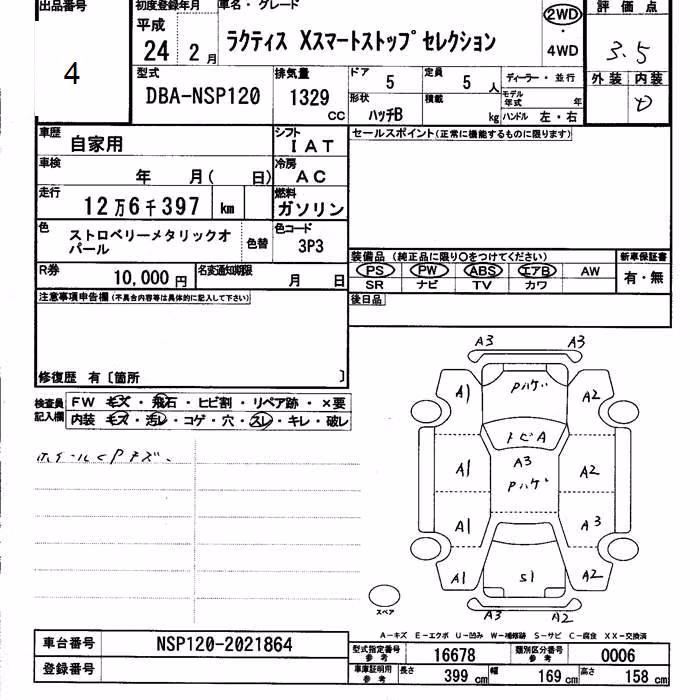 出品番号
4
初度登録年月
平成
24年2月
車名・グレード
ラクティス Xスマートストップ セレクション
2WD
・
4WD
評価点
3.5
外装 内装
型式
DBA-NSP120
排気量
1329
CC
ドア
5
定員
5
人
ディーラー・並行
モデル
年式
年
形状
ハッチB
積載
kg
ハンドル 左・右
車歴
自家用
シフト
IAT
車検
年 月( 日)
冷房
AC
走行
12万6千397 km
燃料
ガソリン
色
ストロベリーメタリックオ
パール
色替
色コード
3P3
R券
10,000円
名変通知期限
月 日
セールスポイント(正常に機能するものに限ります)
装備品 (純正品に限り○をつけてください)
新車保証書
PS PW ABS エアB AW
有・無
SR ナビ TV カワ
後日品
注意事項申告欄(不具合内容等は具体的に記入して下さい)
修復歴 有〔箇所 〕
検査員
記入欄
FW キズ・飛石・ヒビ割・リペア跡・×要
内装 キズ・汚レ・コゲ・穴・スレ・キレ・破レ
A3 A3
A1 Pハゲ A2
トビA
A3
A1 Pハゲ A2
A1 A3
A1 S1 A2
A3 A2
スペア
A-キズ E-エクボ U-凹み W-補修跡 S-サビ C-腐食 XX-交換済
車台番号
NSP120-2021864
登録番号
型式指定番号
参考
16678
類別区分番号
参考
0006
車庫証明用
参考
長さ
399 cm
幅
169 cm
高さ
158 cm